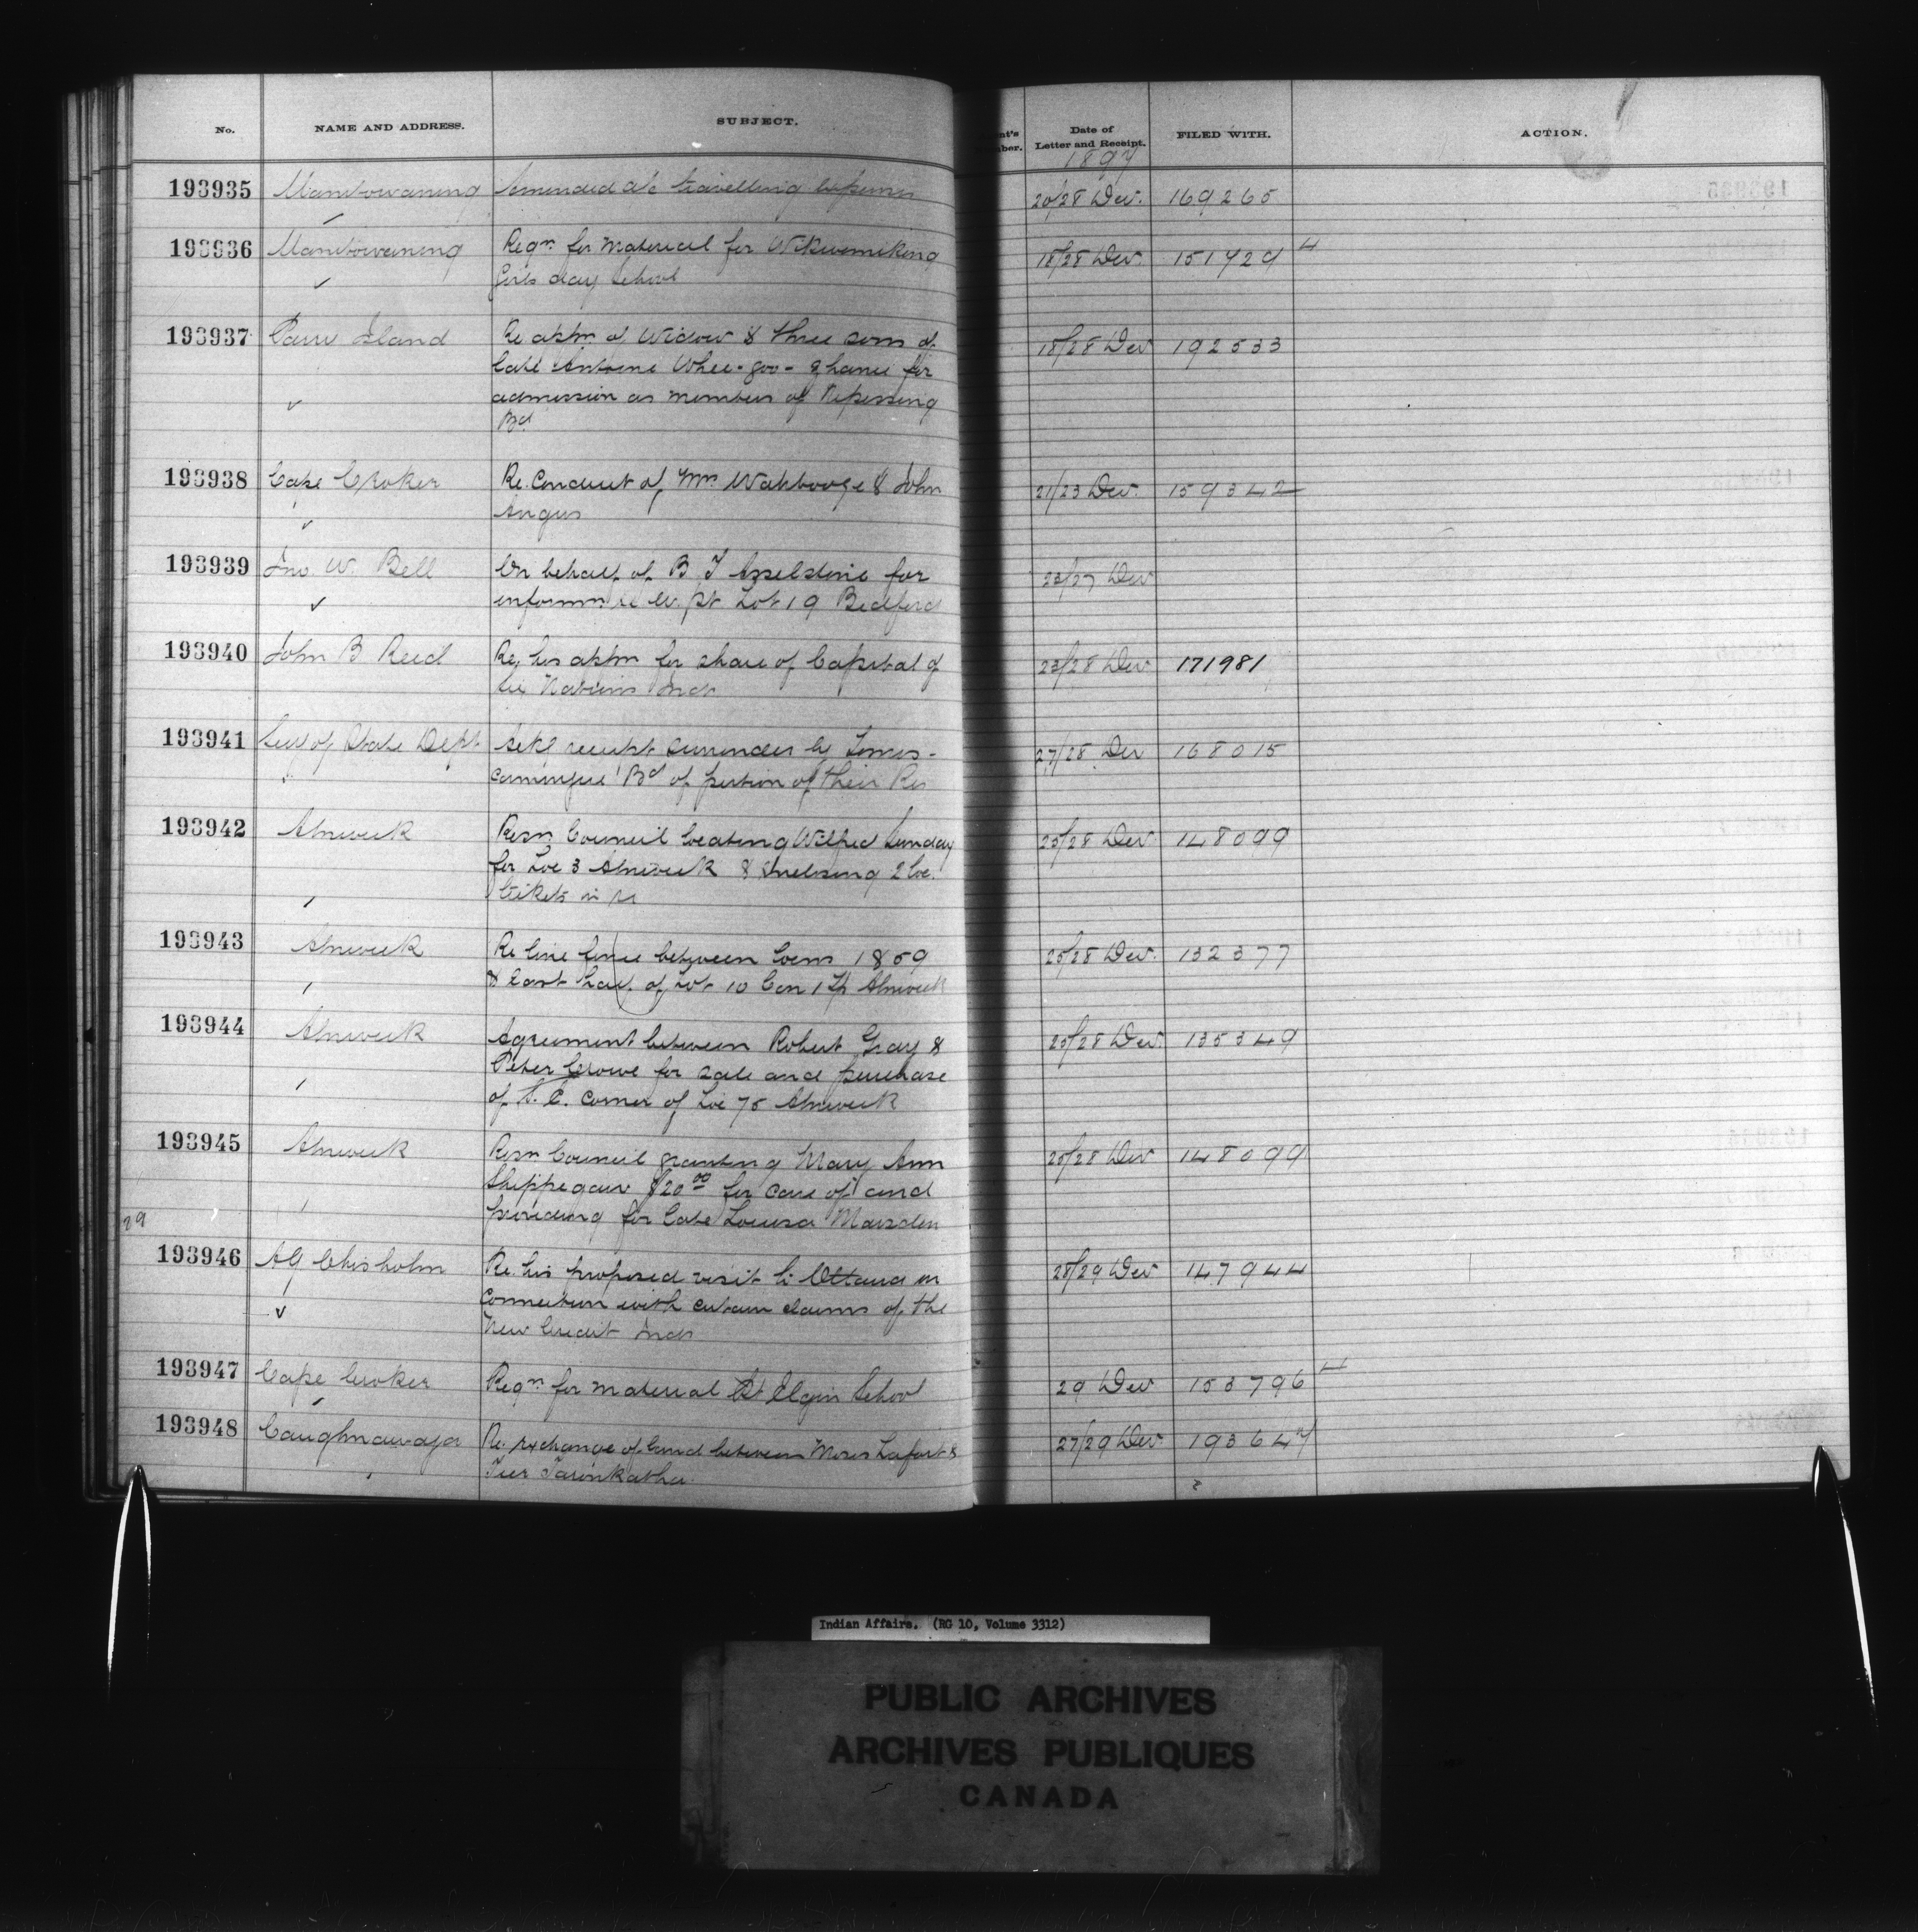 No. NAME AND ADDRESS. SUBJECT. Date of Letter and Receipt. FILED WITH. ACTION.
1897
193935 Manitowaning Amended a/c travelling expenses 20/28 Dec. 169265
193936 Manitowaning Reqn. for material for Wikwemikong 18/28 Dec. 151729 4
Girls day School
193937 Parry Island Re appn. of Widow & three sons of 18/28 Dec 192533
late Antoine Whee-goo- for
admission as members of Nipissing
Bd.
193938 Cape Croker Re. Conduct of Mrs. Wahbooge & John 21/23 Dec. 159342
Angus
193939 Jno. W. Bell On behalf of B J Asselstine for 23/27 Dec
informn. re W. pt Lot 19 Bedford
193940 John B Reid Re. his appn for share of Capital of 23/28 Dec 171981
Six Nations Inds
193941 Secy of State Dept Ackg receipt surrender by Temis- 27/28 Dec 168015
camingue Bd of portion of their Res
193942 Alnwick Resn. Council locating Wilfred Sunday 25/28 Dec. 148099
for Loc 3 Alnwick & Enclosing 2 loc.
tickets in re
193943 Alnwick Re line fence between Locns 18 59 25/28 Dec. 132377
& East half of Lot 10 Con 1 Tp Alnwick
193944 Alnwick Agreement between Robert Gray & 25/28 Dec. 135349
Peter Crowe for sale and purchase
of S. E. Corner of Loc 75 Alnwick
193945 Alnwick Resn. Council granting Mary Ann 25/28 Dec 148099
Shippegaw $20.00 for care of and
providing for late Louisa Marsden
29
193946 AG Chisholm Re. his proposed visit to Ottawa in 28/29 Dec 147944
Connection with certain claims of the
New Credit Inds
193947 Cape Croker Reqn. for material Pt Elgin School 29 Dec 153796 4
193948 Caughnawaga Re. exchange of land between Moses Lafort & 27/29 Dec. 193647
Tier Taronkatha.
Indian Affairs. (RG 10, Volume 3312)
PUBLIC ARCHIVES
ARCHIVES PUBLIQUES
CANADA